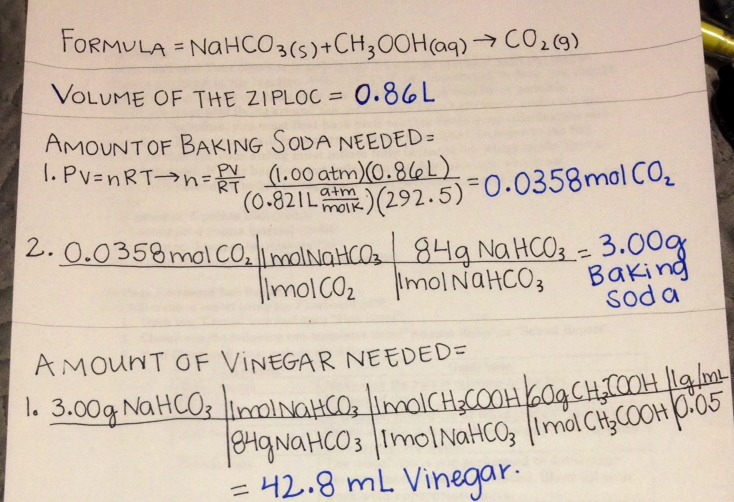 FORMULA = NaHCO₃(s) + CH₃OOH(aq) → CO₂(g)
VOLUME OF THE ZIPLOC = 0.86L
AMOUNT OF BAKING SODA NEEDED =
1. PV=nRT→n= PV/RT (1.00 atm)(0.86L) / (0.821L atm/molK)(292.5) = 0.0358 mol CO₂
2. 0.0358 mol CO₂ | 1 mol NaHCO₃ | 84g NaHCO₃ = 3.00g
| 1 mol CO₂ | 1 mol NaHCO₃ Baking
Soda
AMOUNT OF VINEGAR NEEDED =
1. 3.00g NaHCO₃ | 1 mol NaHCO₃ | 1 mol CH₃COOH | 60g CH₃COOH | 1g/mL
| 84g NaHCO₃ | 1 mol NaHCO₃ | 1 mol CH₃COOH | 0.05
= 42.8 mL Vinegar.